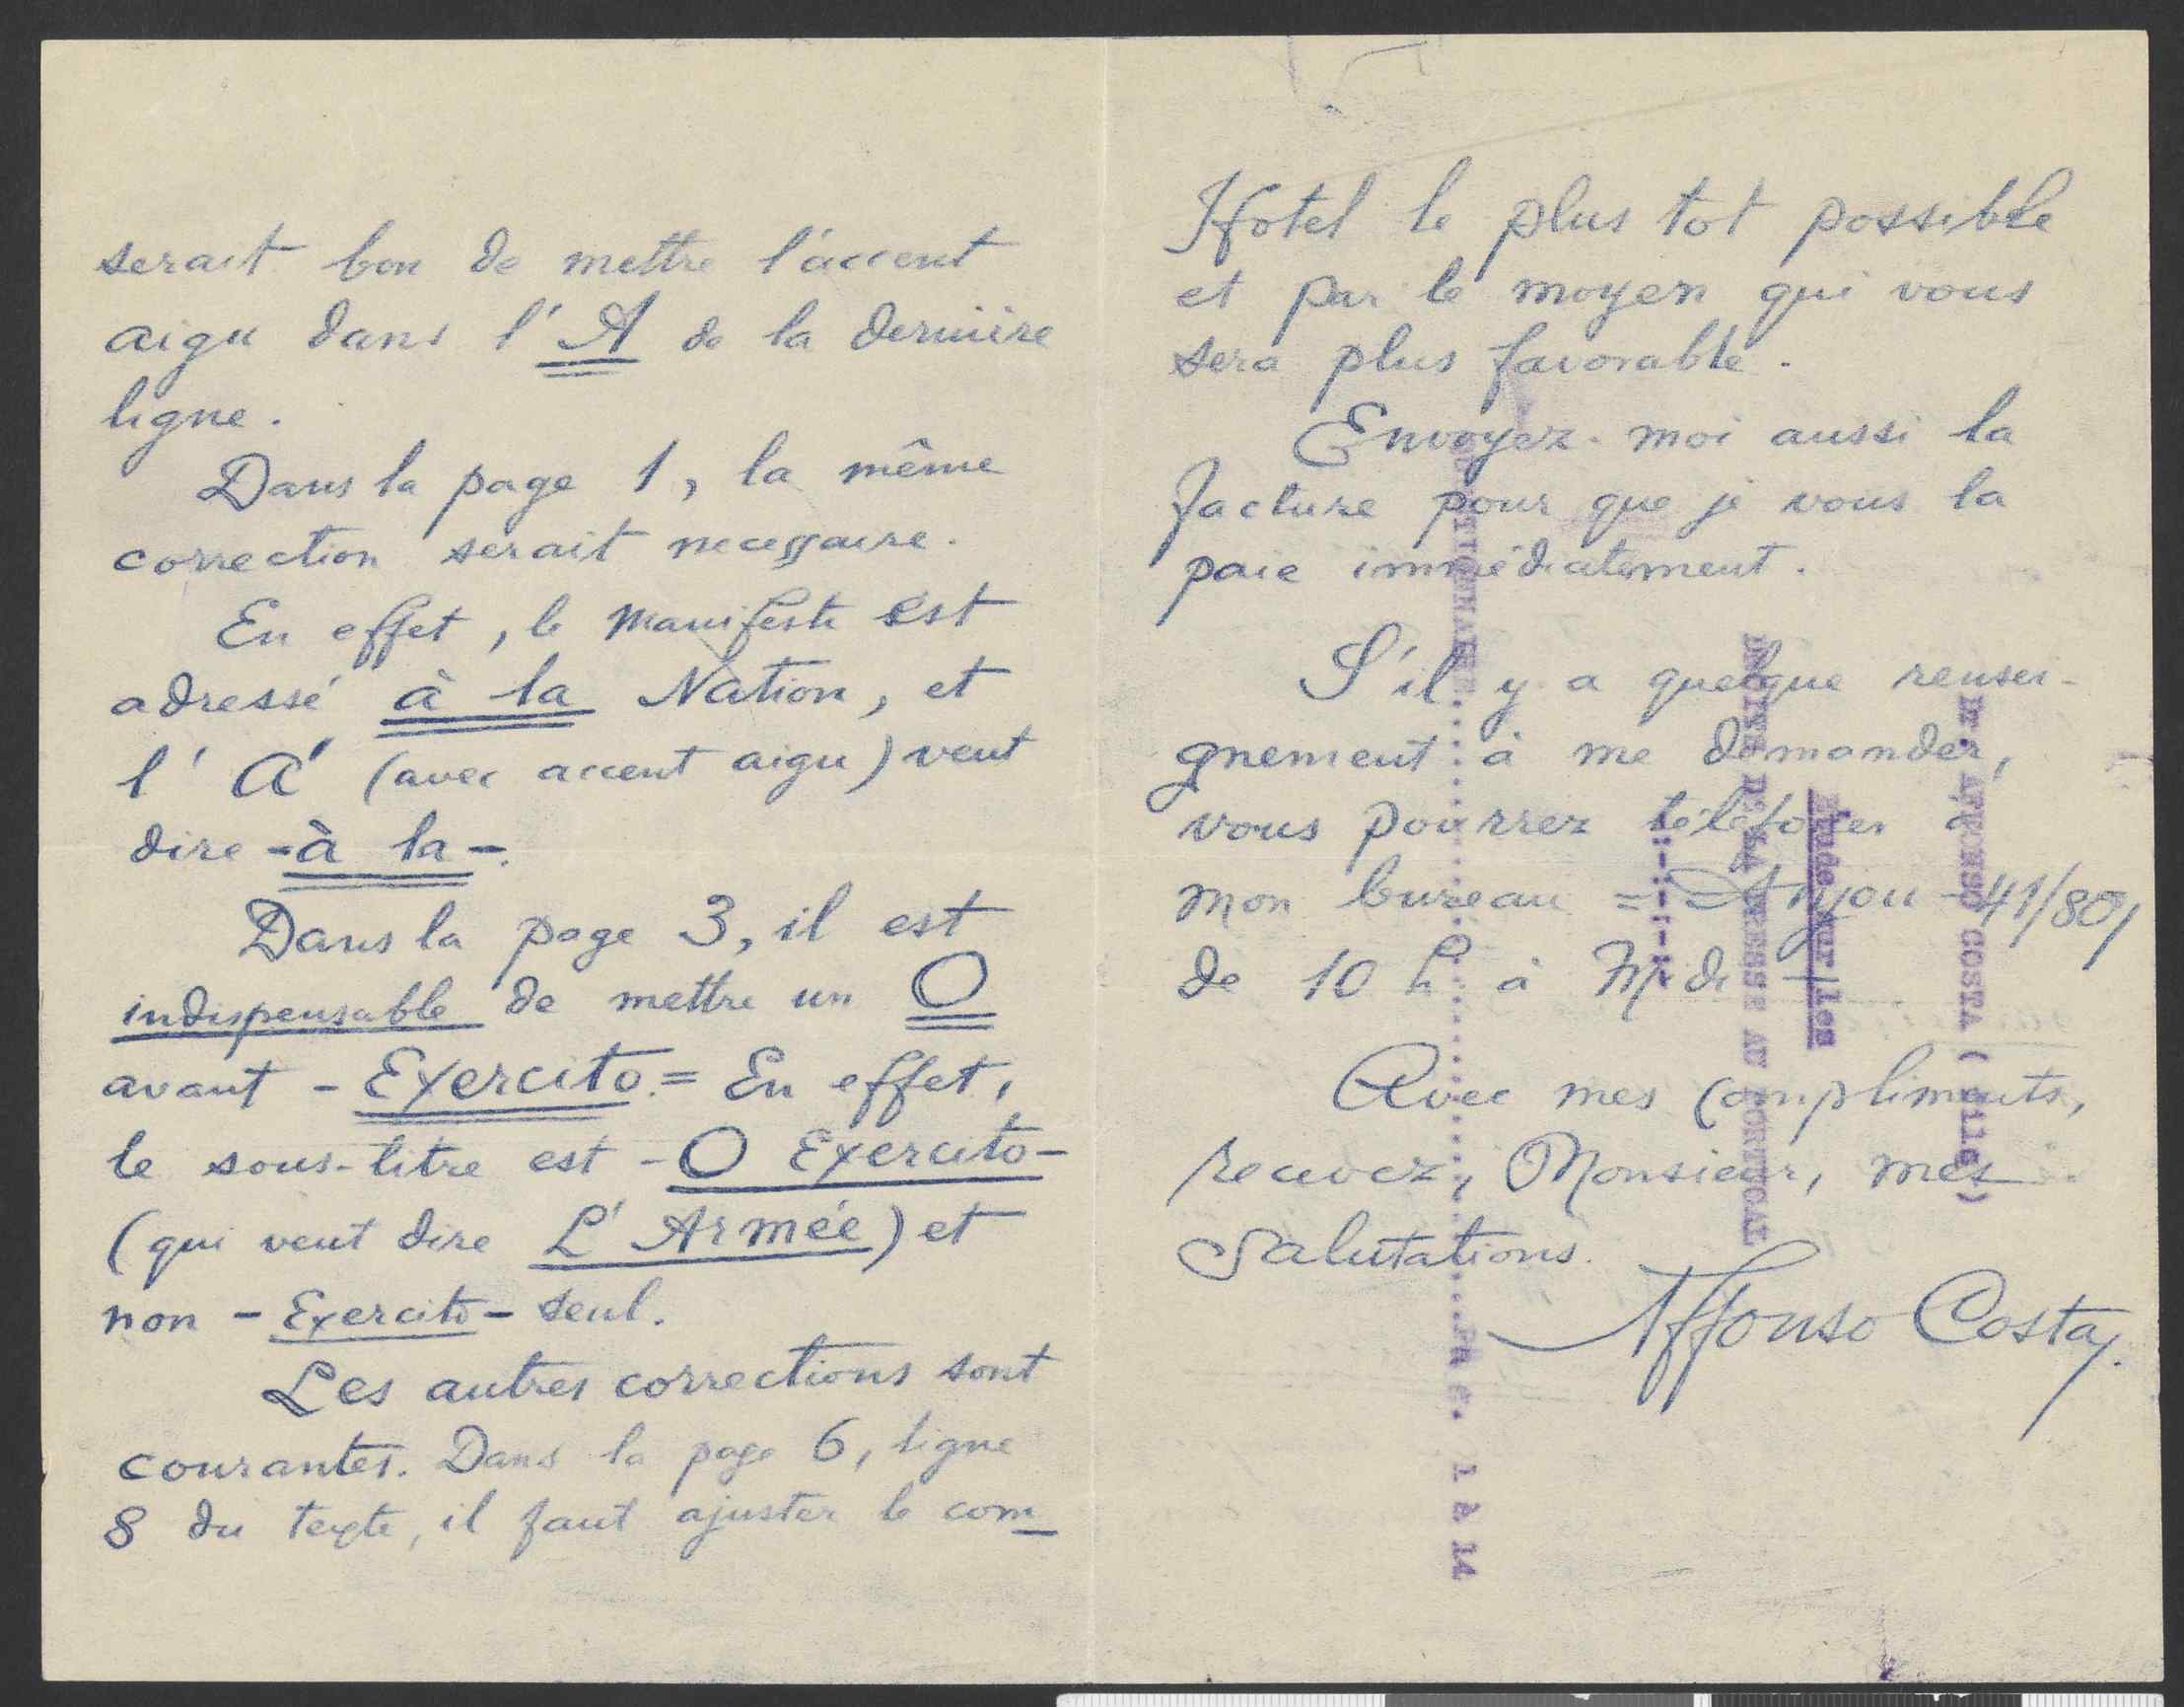 serait bon de mettre l'accent
aigu dans l'A de la dernière
ligne.
Dans la page 1, la même
correction serait necessaire.
En effet, le manifeste est
adressé à la Nation, et
l' Á (avec accent aigu) veut
dire - à la -.
Dans la page 3, il est
indispensable de mettre un O
avant - Exercito. = En effet,
le sous-titre est - O Exercito -
(qui veut dire L'Armée) et
non - Exercito - seul.
Les autres corrections sont
courantes. Dans la page 6, ligne
8 du texte, il faut ajuster le com-
Hotel le plus tot possible
et par le moyen qui vous
sera plus favorable.
Envoyez-moi aussi la
facture pour que je vous la
paie immédiatement.
S'il y a quelque rensei-
gnement à me demander,
vous pourrez téléfoner à
mon bureau = Anjou - 41/80,
de 10 h. à Midi
Avec mes compliments,
recevez, Monsieur, mes
salutations.
Affonso Costa.
Pag. 1 à 14
DE LA PRESSE AU PORTUGAL
Etude sur les
Dr. AFFONSO COSTA (